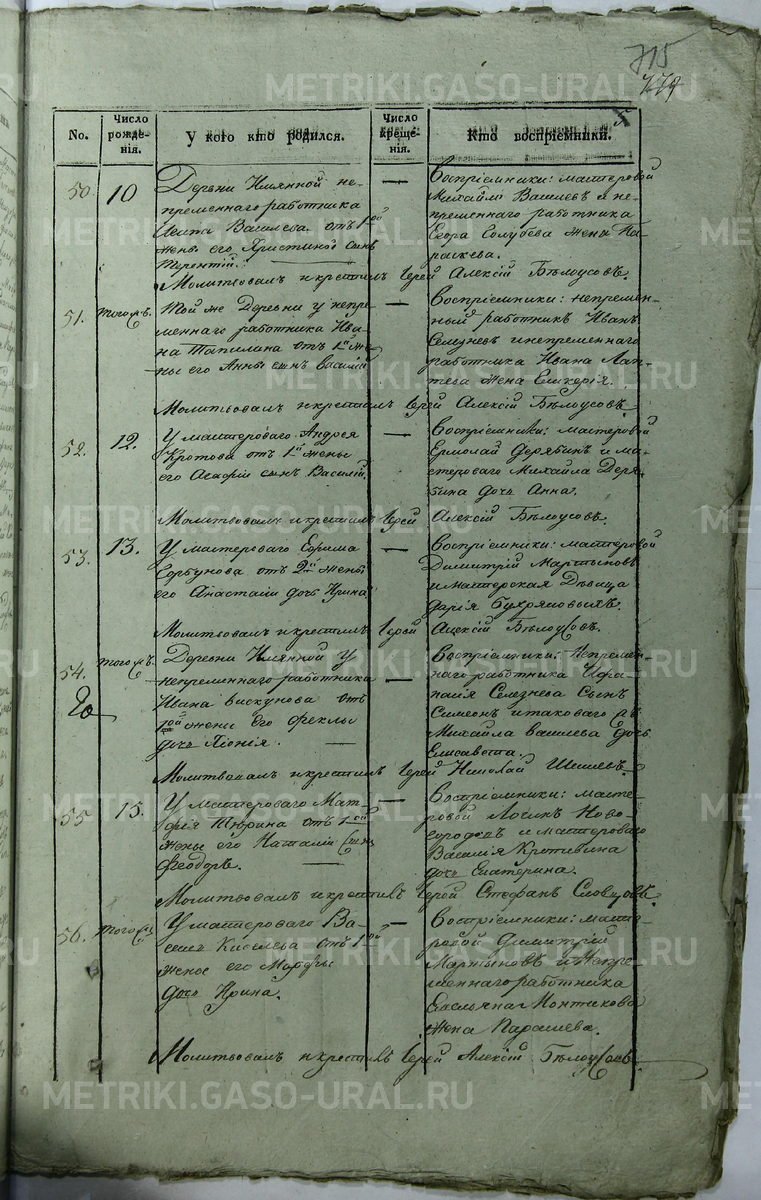 715
779
5
No.
Число рожде- нія.
У кого кто родился.
Число креще- нія.
Кто воспріемники.
50. 10
Деревни Илянной не-
пременнаго работника
Василева отъ 1ой
жены его Христины сынъ
Терентій.
Воспріемники: мастеровой
Михайлъ Василевъ и не-
пременнаго работника
Егора Голубева жена Па-
раскева.
Молитвовалъ и крестилъ Іерей Алексій Бѣлоусовъ.
51. тогожъ.
Той же Деревни у непре-
меннаго работника Ива-
на Топилина отъ 1й же-
ны его Анны сынъ Василій
Воспріемники: непремен-
ный работникъ Иванъ
Селезневъ и непременнаго
работника Ивана Лап-
тева жена Гликерія.
Молитвовалъ и крестилъ Іерей Алексій Бѣлоусовъ.
52. 12.
У мастероваго Андрея
Кротова отъ 1й жены
его Агафіи сынъ Василій.
Воспріемники: мастеровой
Ермолай Дерябинъ и ма-
стероваго Михайла Деря-
бина дочь Анна.
Молитвовалъ и крестилъ Іерей Алексій Бѣлоусовъ.
53. 13.
У мастероваго Ефима
Горбунова отъ 2ой жены
его Анастасіи дочь Ирина
Воспріемники: мастеровой
Димитрій Мартыновъ
и мастерская Дѣвица
Дарія Бухряковыхъ.
Молитвовалъ и крестилъ Іерей Алексій Бѣлоусовъ.
54. тогожъ.
Деревни Илянной У
непременнаго работника
Ивана Пискунова отъ
1ой жены его Феклы
дочь Гіонія.
Воспріемники: Непремен-
наго работника
Селезнева Сынъ
Симеонъ и таковаго жъ
Михайла Василева Дочь
Елисавета.
Молитвовалъ и крестилъ Іерей Николай Шишевъ.
55 15.
У мастероваго Мат-
фія Тюрина отъ 1ой
жены его Наталіи сынъ
Феодоръ.
Воспріемники: масте-
ровой Логинъ Ново-
городовъ и мастероваго
Василія Кротивина
дочь Екатерина.
Молитвовалъ и крестилъ Іерей Стефанъ Словцовъ.
56. тогожъ
У мастероваго Ва-
силія Киселева отъ 1ой
жены его Марфы
дочь Ирина.
Воспріемники: масте-
ровой Димитрій
Мартыновъ и Непре-
меннаго работника
жена Параскева.
Молитвовалъ и крестилъ Іерей Алексій Бѣлоусовъ.
METRIKI.GASO-URAL.RU